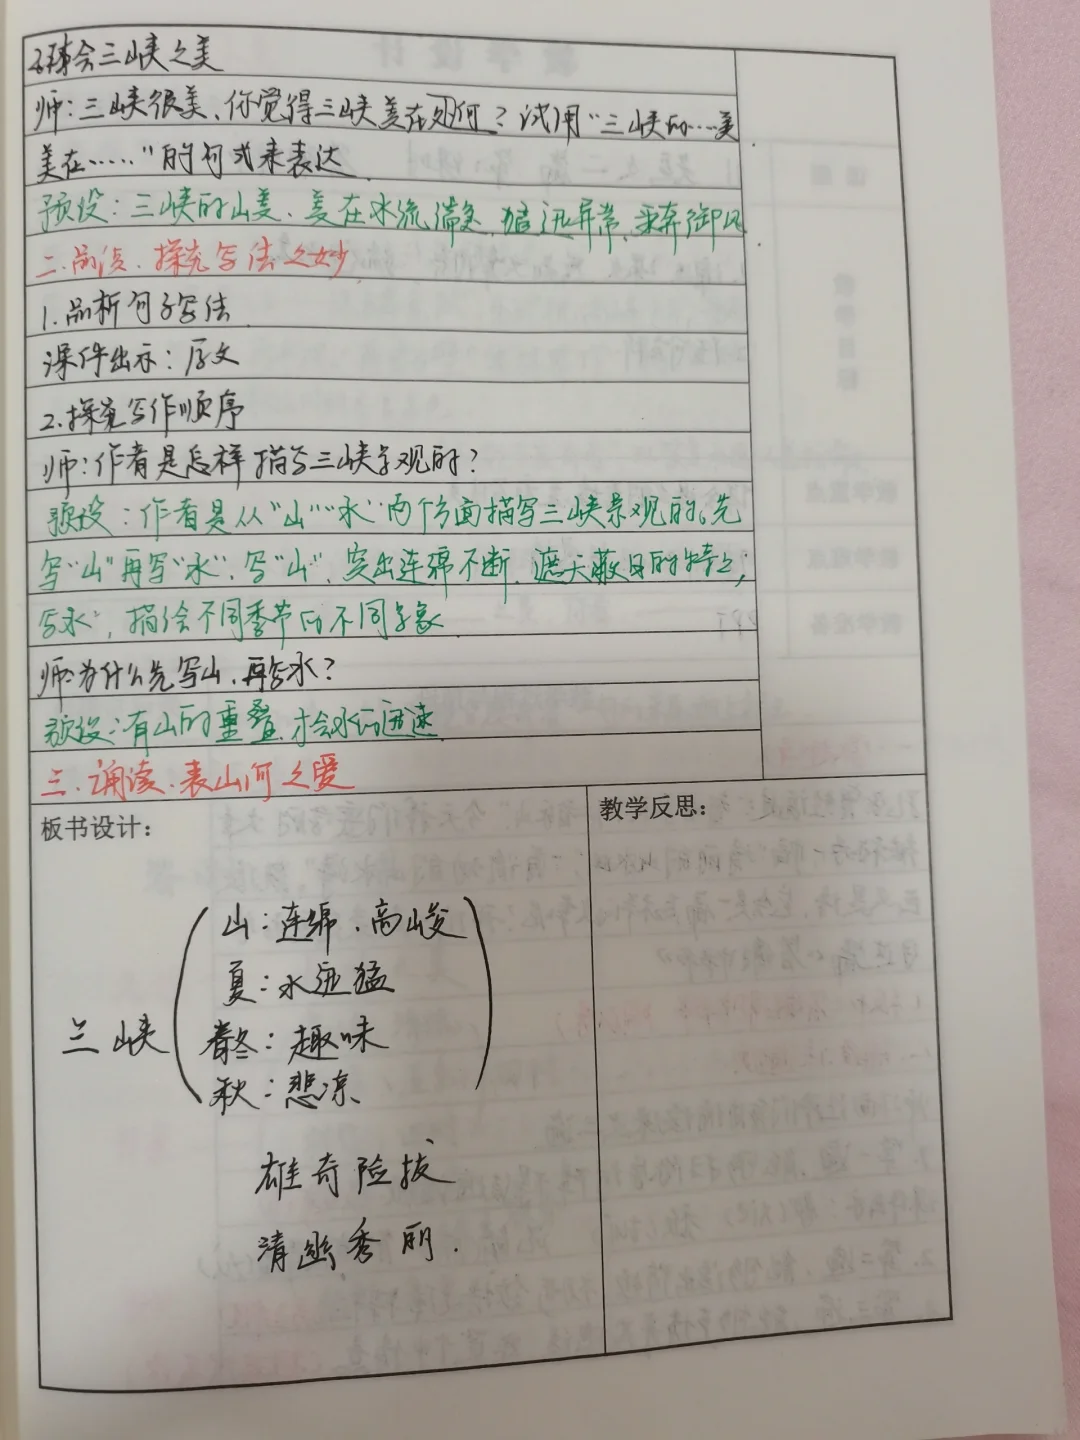 体会三峡之美
师:三峡很美、你觉得三峡美在何处?试用“三峡的…美
美在……”的句式来表达
预设:三峡的山美、美在水流湍急、猛迅异常、乘奔御风
二.品读、探究写法之妙
1.品析句子写法
课件出示:原文
2.探究写作顺序
师:作者是怎样描写三峡景观的?
预设:作者是从“山”“水”两个方面描写三峡景观的。先
写“山”再写“水”、写“山”、突出连绵不断、遮天蔽日的特点,
写水”,描绘不同季节的不同景象
师:为什么先写山、再写水?
预设:有山的重叠、才会水流迅速
三.诵读、表山河之爱
板书设计:
教学反思:
山:连绵、高峻
夏:水迅猛
三峡
春冬:趣味
秋:悲凉
雄奇险拔
清幽秀丽.